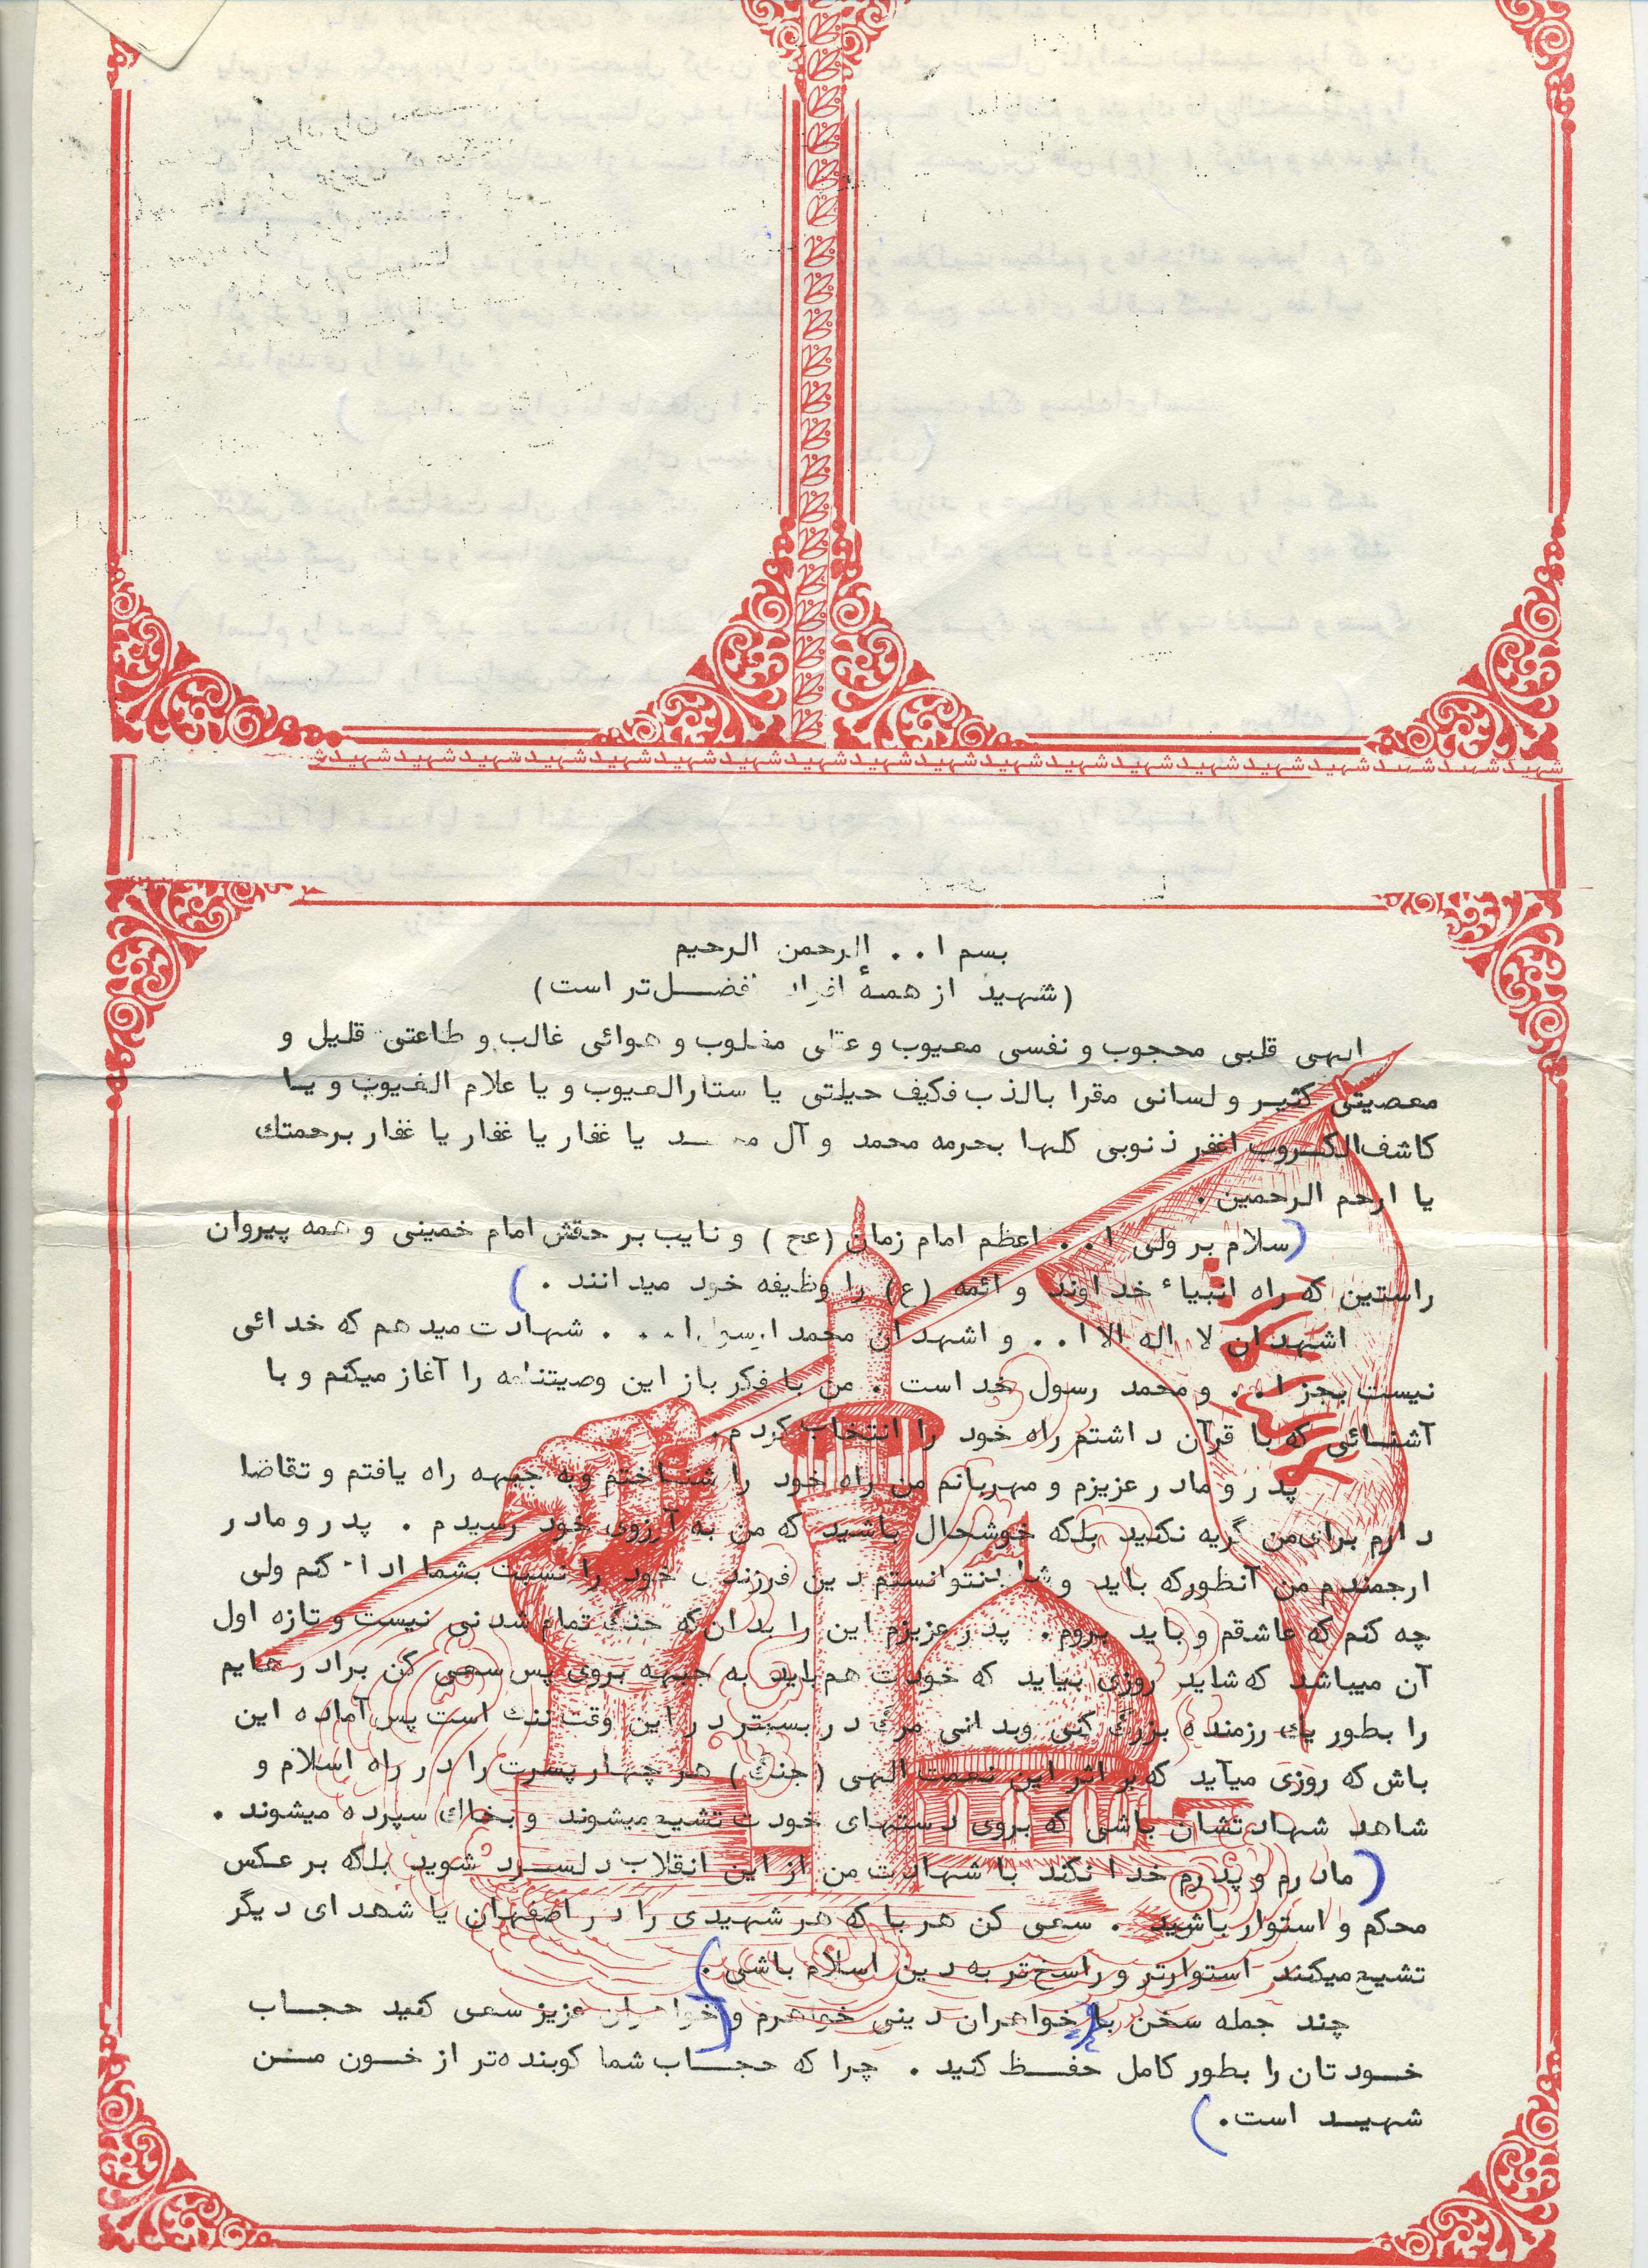 شهید شهید شهید شهید شهید شهید شهید شهید شهید شهید شهید شهید شهید شهید شهید شهید شهید شهید شهید
بسم ا . . الرحمن الرحیم
(شهید از همهٔ افراد افضل‌تر است)
الهی قلبی محجوب و نفسی معیوب و عقلی مغلوب و هوائی غالب و طاعتی قلیل و
معصیتی کثیر و لسانی مقرا بالذب فکیف حیلتی یا ستارالعیوب و یا علام الغیوب و یا
کاشف‌الکروب اغفر ذنوبی کلها بحرمه محمد و آل محمد یا غفار یا غفار یا غفار برحمتك
یا ارحم الرحمین .
(سلام بر ولی ا . . اعظم امام زمان (عج) و نایب بر حقش امام خمینی و همه پیروان
راستین که راه انبیاء خداوند و ائمه (ع) را وظیفه خود میدانند . )
اشهدان لا اله الا ا . . و اشهدان محمدا رسول ا . . . شهادت میدهم که خدائی
نیست بجز ا . . و محمد رسول خداست . من با فکر باز این وصیتنامه را آغاز میکنم و با
آشنائی که با قرآن داشتم راه خود را انتخاب کردم .
پدر و مادر عزیزم و مهربانم من راه خود را شناختم وبه جبهه راه یافتم و تقاضا
دارم برای‌من گریه نکنید بلکه خوشحال باشید که من به آرزوی خود رسیدم . پدر و مادر
ارجمندم من آنطورکه باید و شاید نتوانستم دین فرزندی خود را نسبت بشما ادا کنم ولی
چه کنم که عاشقم و باید بروم . پدر عزیزم این را بدان‌که جنگ تمام شدنی نیست و تازه اول
آن میباشد که شاید روزی بیاید که خودت هم باید به جبهه بروی پس سعی کن برادرهایم
را بطور یك رزمنده بزرگ کنی وبدانی مرگ در بستر در این وقت ننگ است پس آماده این
باش که روزی میآید که بر اثر این نعمت الهی (جنگ) هر چهار پسرت را در راه اسلام و
شاهد شهادتشان باشی که بروی دستهای خودت تشیع میشوند و بخاك سپرده میشوند .
(مادرم و پدرم خدا نکند با شهادت من از این انقلاب دلسرد شوید بلکه بر عکس
محکم و استوار باشید . سعی کن هر با که هر شهیدی را در اصفهان یا شهدای دیگر
تشیع میکنند استوارتر و راسخ‌تر به دین اسلام باشی . )
چند جمله سخن با خواهران دینی خواهرم و (خواهران عزیز سعی کنید حجاب
خودتان را بطور کامل حفظ کنید . چرا که حجاب شما کوبنده‌تر از خون من
شهید است . )